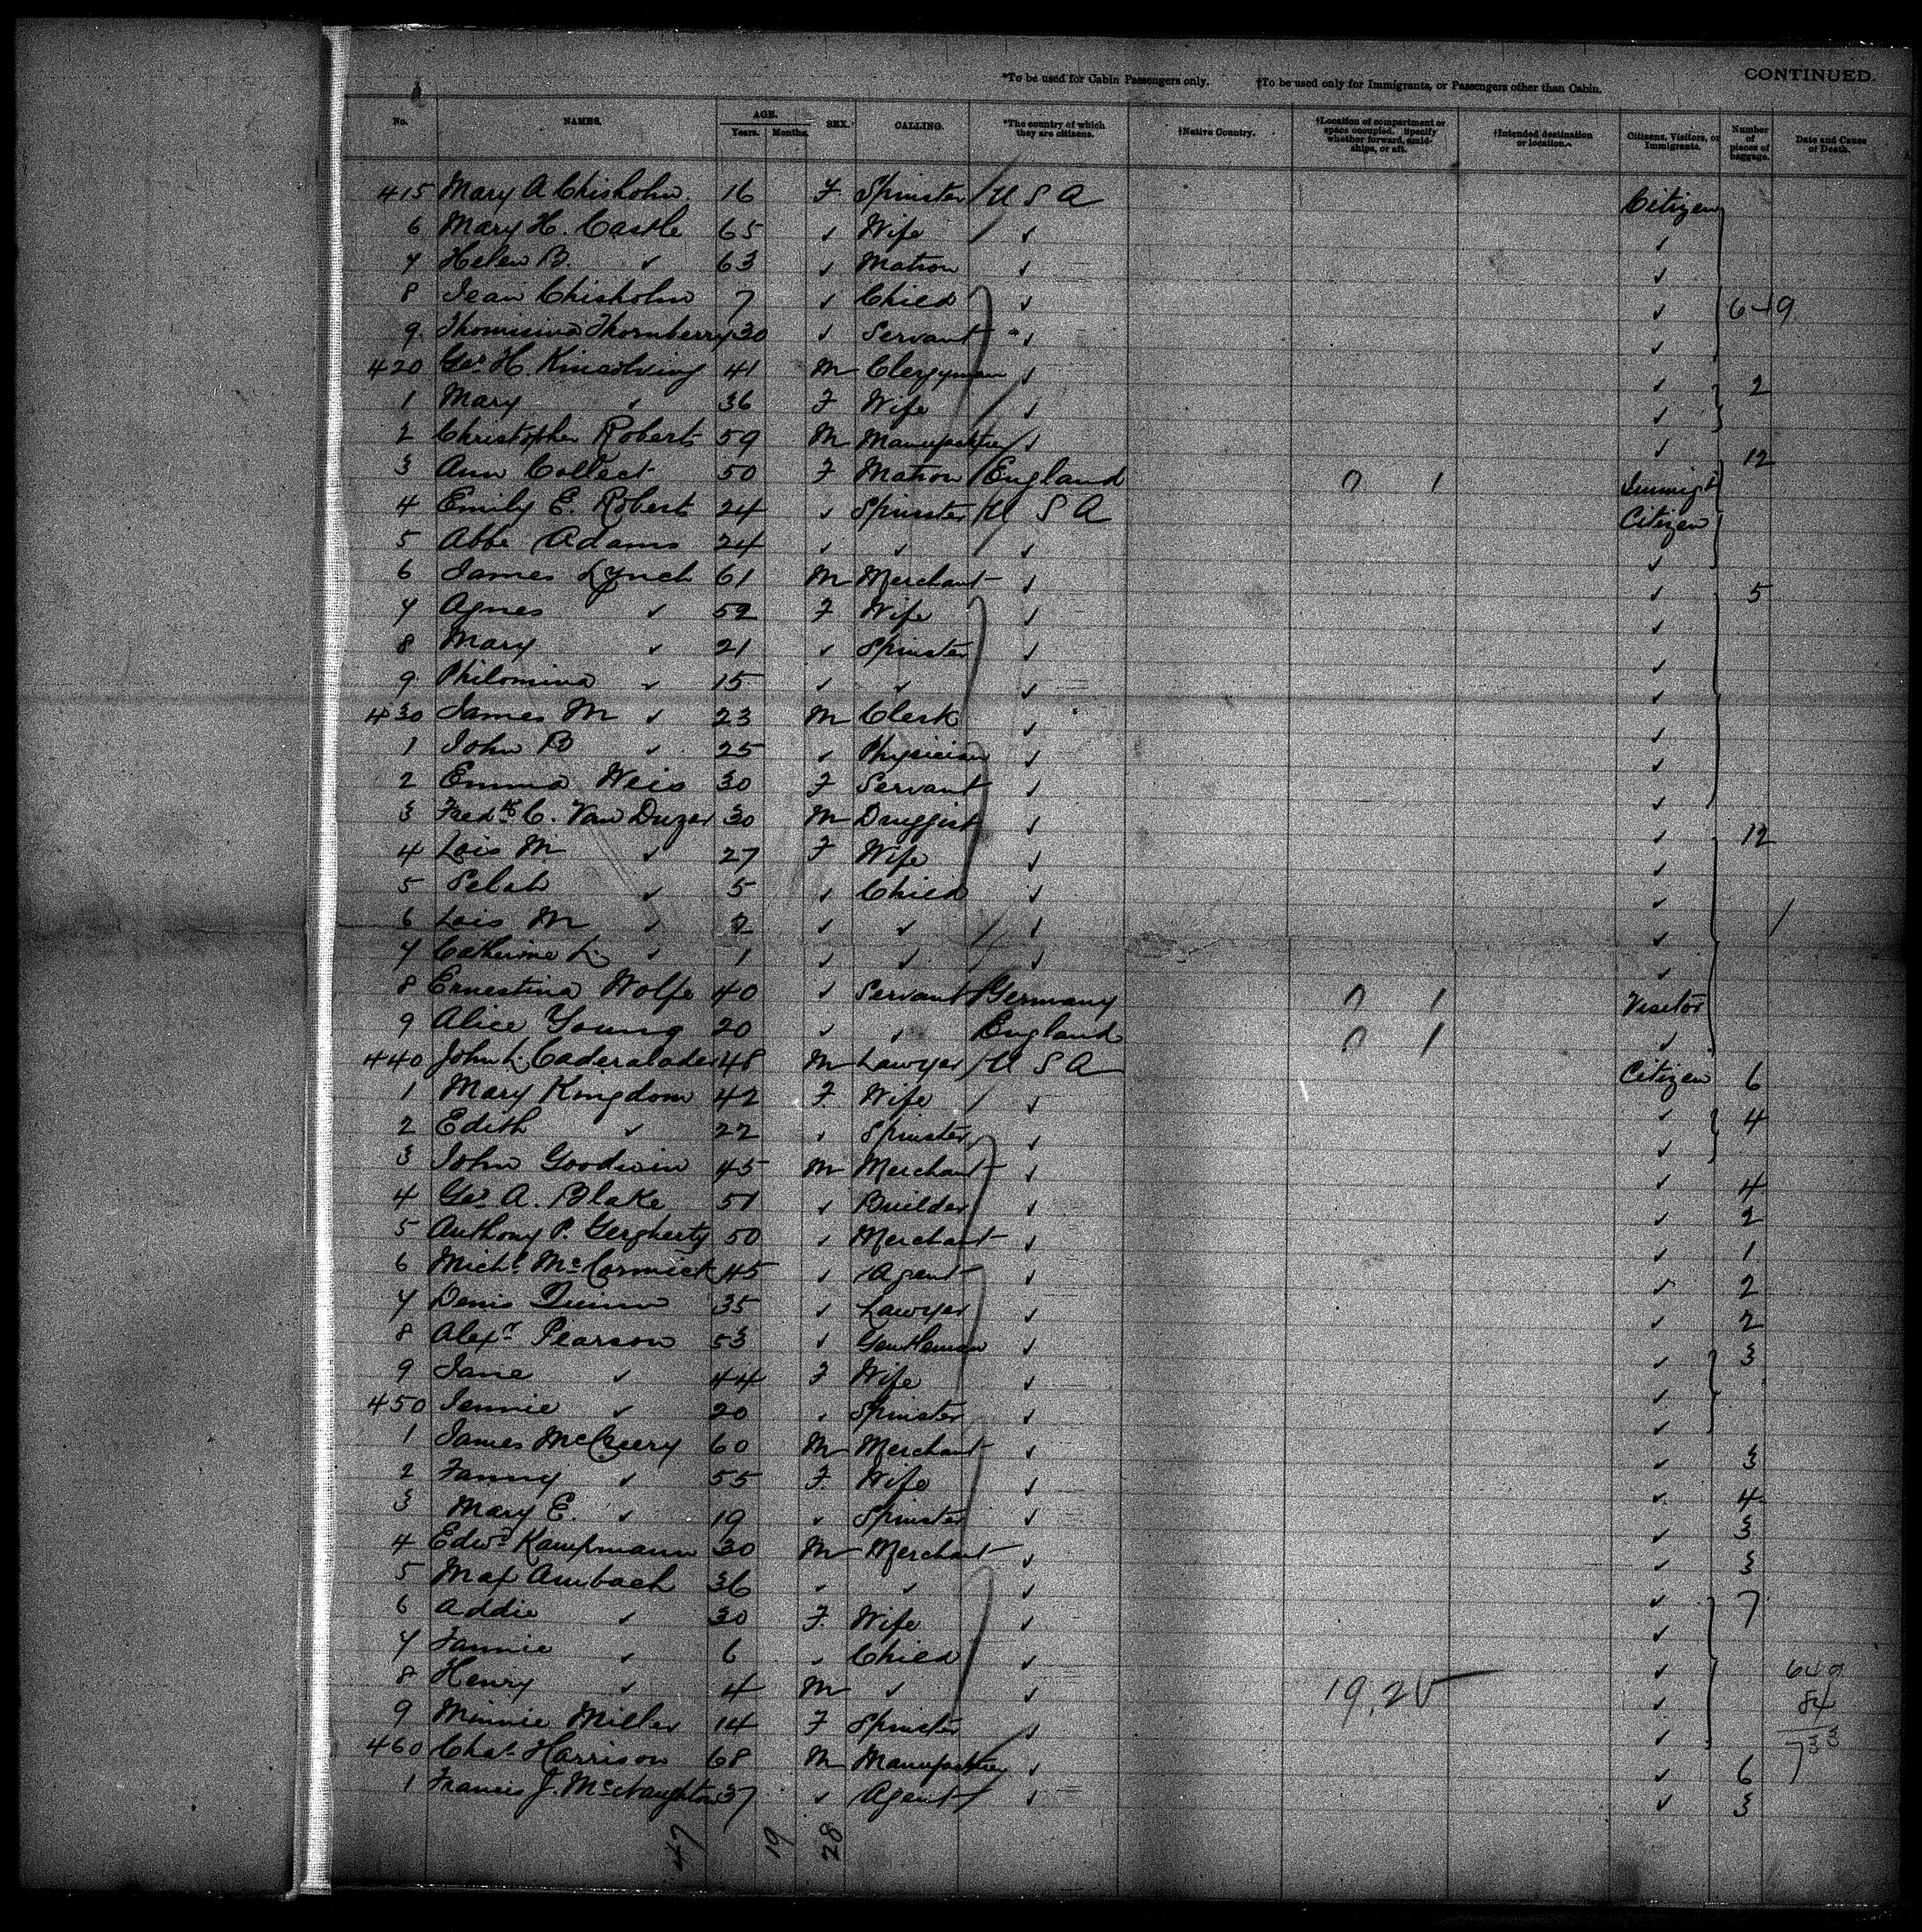 *To be used for Cabin Passengers only. †To be used only for Immigrants, or Passengers other than Cabin. CONTINUED.
No. NAMES. AGE. Years. Months. SEX. CALLING. *The country of which they are citizens. †Native Country. †Location of compartment or space occupied. Specify whether forward, amidships, or aft. †Intended destination or location. Citizens, Visitors, or Immigrants. Number of pieces of baggage. Date and Cause of Death.
415 Mary A Chisholm 16 F Spinster U S A Citizen
6 Mary H. Castle 65 ✓ Wife ✓ ✓
7 Helen B. ✓ 63 ✓ Matron ✓ ✓
8 Jean Chisholm 7 ✓ Child ✓ ✓ 649
9 Thomisina Thornberry 30 ✓ Servant ✓ ✓
420 Geo H. Kinsolving 41 M Clergyman ✓ ✓ 2
1 Mary ✓ 36 F Wife ✓ ✓
2 Christopher Roberts 59 M ✓ ✓ 12
3 Ann Collect 50 F Matron England 0 1 Immigt
4 Emily E. Roberts 24 ✓ Spinster U S A Citizen
5 Abbe Adams 24 ✓ ✓ ✓ ✓
6 James Lynch 61 M Merchant ✓ ✓ 5
7 Agnes ✓ 52 F Wife ✓ ✓
8 Mary ✓ 21 ✓ Spinster ✓ ✓
9 Philomina ✓ 15 ✓ ✓ ✓ ✓
430 James M ✓ 23 M Clerk ✓ ✓
1 John B ✓ 25 ✓ Physician ✓ ✓
2 Emma Weis 30 F Servant ✓ ✓
3 Fredk C. Van Duzer 30 M Druggist ✓ ✓ 12
4 Lois M ✓ 27 F Wife ✓ ✓
5 Selah ✓ 5 ✓ Child ✓ ✓
6 Lois M ✓ 2 ✓ ✓ ✓ ✓
7 Catherine L. ✓ 1 ✓ ✓ ✓ ✓
8 Ernestina Wolfe 40 ✓ Servant Germany 0 1 Visitor
9 Alice Young 20 ✓ ✓ England 0 1 ✓
440 John L. Caderalader 48 M Lawyer U S A Citizen 6
1 Mary Kingdom 42 F. Wife ✓ ✓ 4
2 Edith ✓ 22 ✓ Spinster ✓ ✓
3 John Goodwin 45 M Merchant ✓ ✓ 4
4 Geo A. Blake 51 ✓ Builder ✓ ✓ 2
5 Anthony P. Gergherty 50 ✓ Merchant ✓ ✓ 1
6 Michl McCormick 45 ✓ Agent ✓ ✓ 2
7 Denis Quinn 35 ✓ Lawyer ✓ ✓ 2
8 Alexr Pearson 53 ✓ Gentleman ✓ ✓ 3
9 Jane ✓ 44 F Wife ✓ ✓
450 Jennie ✓ 20 ✓ Spinster ✓ ✓
1 James McCreery 60 M Merchant ✓ ✓ 3
2 Fanny ✓ 55 F. Wife ✓ ✓ 4
3 Mary E. ✓ 19 ✓ Spinster ✓ ✓ 3
4 Edwd Kampmann 30 M Merchant ✓ ✓ 3
5 Max Aumbach 36 ✓ ✓ ✓ ✓ 7
6 Addie ✓ 30 F. Wife ✓ ✓
7 Fannie ✓ 6 ✓ Child ✓ ✓
8 Henry ✓ 4 M ✓ ✓ 19.25 ✓ 649
9 Minnie Miller 14 F Spinster ✓ ✓ 84
460 Chas Harrison 68 M ✓ ✓ 6 733
1 Francis J. McNaughton 37 ✓ Agent ✓ ✓ 3
47 19 28